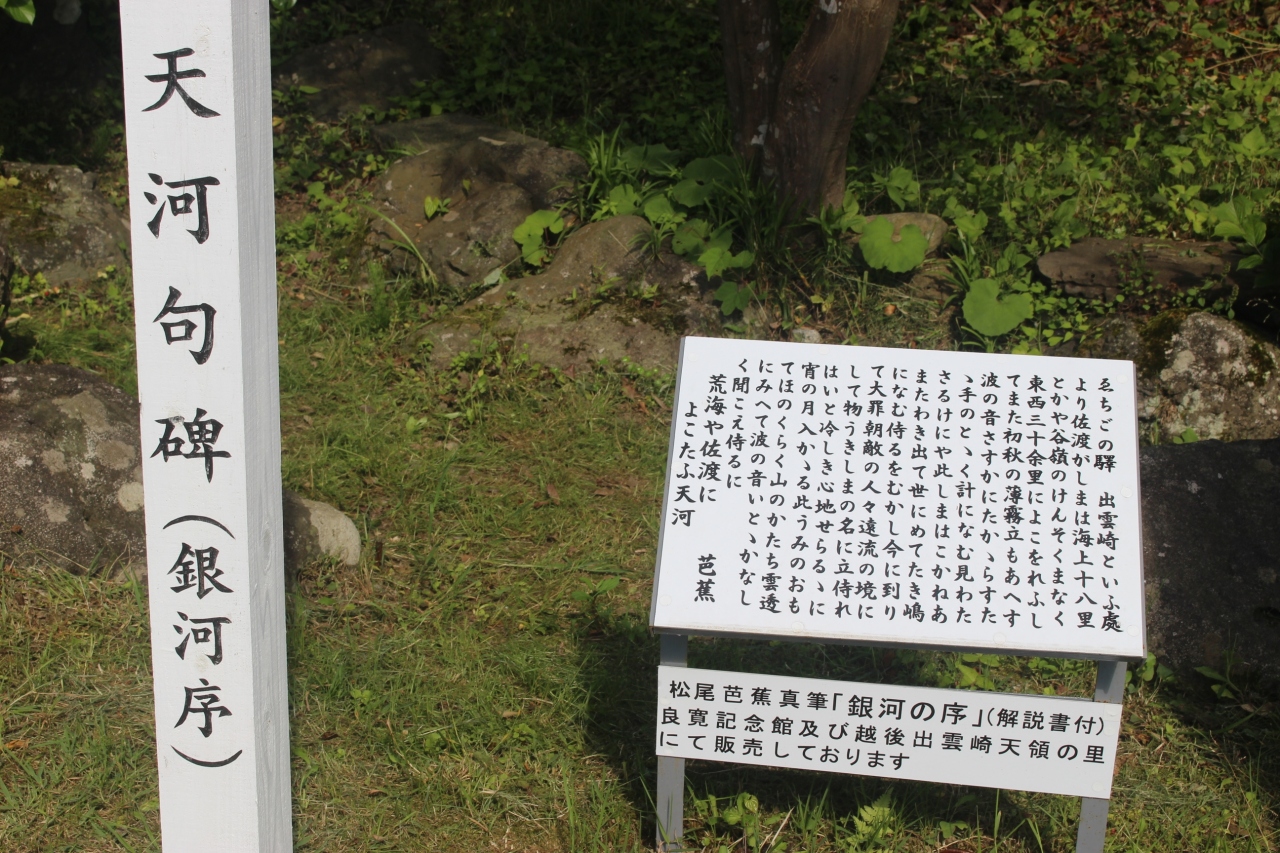 天河句碑（銀河序）
ゑちごの驛　出雲崎といふ處
より佐渡がしまは海上十八里
とかや谷嶺のけんそくまなく
東西三十余里によこをれふし
てまた初秋の薄霧立もあへす
波の音さすかにたかゝらすたた
ゝ手のとゝく計になむ見わた
さるけにや此しまはこかねあ
またわき出て世にめてたき嶋
になむ侍るをむかし今に到り
て大罪朝敵の人々遠流の境に
して物うきしまの名に立侍れ
はいと冷しき心地せらるゝに
宵の月入かゝる此うみのおも
てほのくらく山のかたち雲透
にみへて波の音いとゝかなし
く聞こえ侍るに
荒海や佐渡に
よこたふ天河
芭蕉
松尾芭蕉真筆「銀河の序」（解説書付）
良寛記念館及び越後出雲崎天領の里
にて販売しております